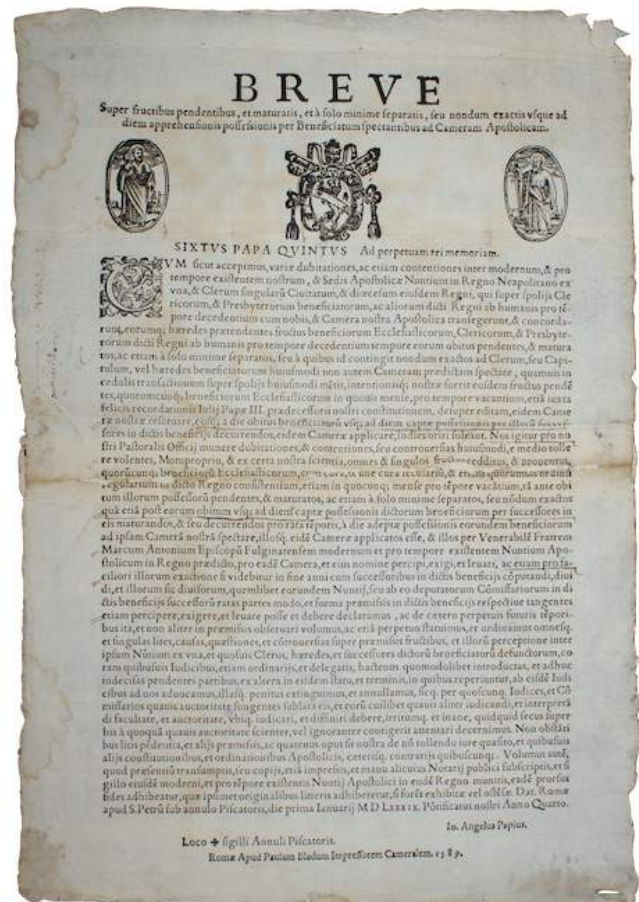 BREVE
Super fructibus pendentibus, et maturatis, et à solo minime separatis, seu nondum exactis vsque ad
diem apprehensionis possessionis per Beneficiatum spectantibus ad Cameram Apostolicam.
SIXTVS PAPA QVINTVS Ad perpetuam rei memoriam.
CVM sicut accepimus, variæ dubitationes, ac etiam contentiones inter modernum, & pro
tempore existentem nostrum, & Sedis Apostolicæ Nuntium in Regno Neapolitano ex
vna, & Clerum singularū Ciuitatum, & diœcesum eiusdem Regni, qui super spolijs Cle
ricorum, & Presbyterorum beneficiatorum, ac aliorum dicti Regni ab humanis pro tē-
pore decedentium cum nobis, & Camera nostra Apostolica transegerunt, & concorda-
runt, eorumq; hæredes prætendentes fructus beneficiorum Ecclesiasticorum, Clericorum, & Presbyte-
rorum dicti Regni ab humanis pro tempore decedentium tempore eorum obitus pendentes, & matura
tos, ac etiam à solo minime separatos, seu à quibus id contingit nondum exactos ad Clerum, seu Capi-
tulum, vel hæredes beneficiatorum huiusmodi non autem Cameram prædictam spectare, quamuis in
cedulis transactionum super spolijs huiusmodi mētis, intentionisq; nostræ fuerit eosdem fructus pendē
tes, quorumcunq; beneficiorum Ecclesiasticorum in quouis mense, pro tempore vacantium, etiā iuxta
felicis recordationis Iulij Papæ III. prædecessoris nostri constitutionem, desuper editam, eidem Came
ræ nostræ reseruare, eosq; à die obitus beneficiatorū vsq; ad diem captæ possessionis per illorū successores
fores in dictis beneficijs decurrendos, eidem Cameræ applicare, indies oriri soleant. Nos igitur pro no
stri Pastoralis Officij munere dubitationes, & contentiones, seu controuersias huiusmodi, e medio tolle
re volentes, Motuproprio, & ex certa nostra scientia, omnes & singulos redditus, & prouentus,
quorumcunq; beneficiorū Ecclesiasticorum, sine cura secularū, & quorumuis ordinū
regularium in dicto Regno consistentium, etiam in quocunq; mense pro tēpore vacātium, tā ante obi
tum illorum possessorū pendentes, & maturatos, ac etiam à solo minime separatos, seu nōdum exactos
quā etiā post eorum obitum vsq; ad diem captæ possessionis dictorum beneficiorum per successores in
eis maturandos, & seu decurrendos pro rata tēporis, à die adeptæ possessionis eorundem beneficiorum
ad ipsam Camerā nostrā spectare, illosq; eidē Cameræ applicatos esse, & illos per Venerabilē Fratrem
Marcum Antonium Episcopū Fulginatensem modernum et pro tempore existentem Nuntium Apo-
stolicum in Regno prædicto, pro eadē Camera, et eius nomine percipi, exigi, et leuari, ac etiam pro fa-
ciliori illorum exactione si videbitur in fine anni cum successoribus in dictis beneficijs cōputandi, diui
di, et illorum sic diuisorum, quemlibet eorundem Nuntij, seu ab eo deputatorum Cōmissariorum in di
ctis beneficijs successorū ratas partes modo, et forma præmissis in dictis beneficijs respectiue tangentes
etiam percipere, exigere, et leuare posse et debere declaramus, ac de cætero perpetuis futuris tēpori-
bus ita, et non aliter in præmissis obseruari volumus, ac etiā perpetuo statuimus, et ordinamus omnesq,
et singulas lites, causas, quæstiones, et cōtrouersias super præmissis fructibus, et illorū perceptione inter
ipsum Nūtium ex vna, et quosuis Clerus, hæredes, et successores dictorū beneficiatorū defunctorum, co
ram quibusuis Iudicibus, etiam ordinarijs, et delegatis, hactenus quomodolibet introductas, et adhuc
indecisas pendentes partibus, ex altera in eisdem statu, et terminis, in quibus reperiuntur, ab eisdē Iudi
cibus ad nos aduocamus, illasq. penitus extinguimus, et annullamus, sicq. per quoscunq. Iudices, et Cō
missarios quauis auctoritate fungentes sublata eis, et eorū cuilibet quauis aliter iudicandi, et interpretā
di facultate, et auctoritate, vbiq. iudicari, et diffiniri debere, irritumq. et inane, quidquid secus super
his à quoquā quauis auctoritate scienter, vel ignoranter contigerit attentari decernimus. Non obstāti
bus litis pēdentia, et alijs præmissis, ac quatenus opus sit nostra de nō tollendo iure quæsito, et quibusuis
alijs constitutionibus, et ordinationibus Apostolicis, ceterisq. contrarijs quibuscunq. Volumus autē,
quod præsentiū transumptis, seu copijs, etiā impressis, et manu alicuius Notarij publici subscriptis, et si
gillo eiusdē moderni, et pro tēpore existentis Nuntij Apostolici in eodē Regno munitis, eadē prorsus
fides adhibeatur, quæ ipsismet originalibus litteris adhiberetur, si forēt exhibitæ vel ostēsæ. Dat. Romæ
apud S. Petrū sub annulo Piscatoris, die prima Ianuarij M D LXXXIX. Pōtificatus nostri Anno Quarto.
Io. Angelus Papius.
Loco ✠ sigilli Annuli Piscatoris.
Romæ Apud Paulum Bladum Impressorem Cameralem. 1589.